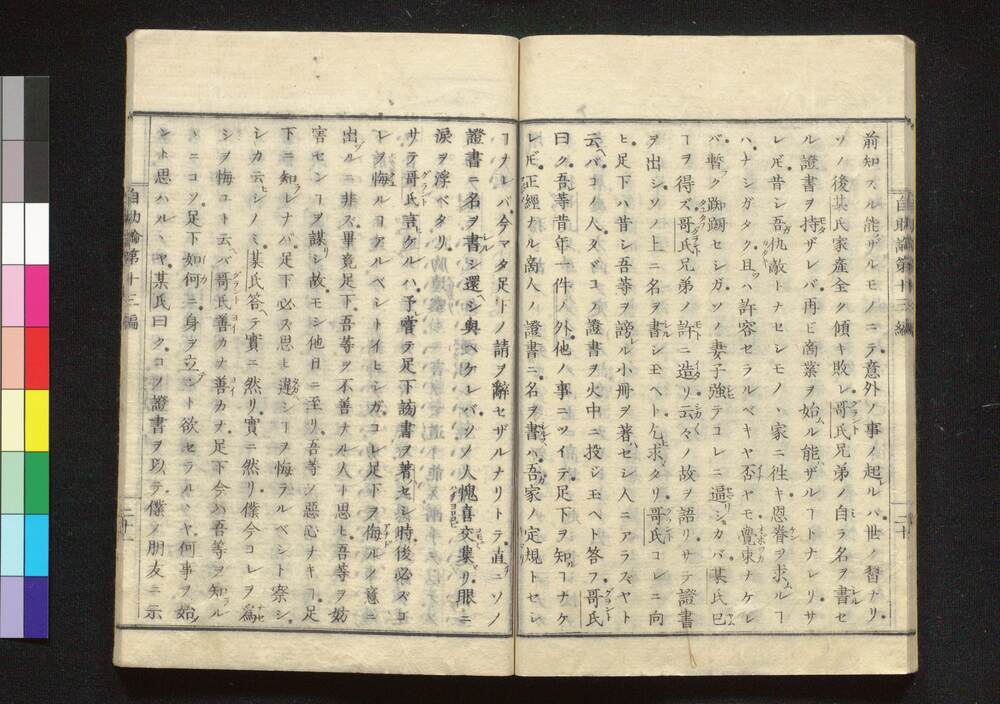 自助論第十三編
二十
前知スル能ザルモノニテ意外ノ事ノ起ルハ世ノ習ナリ
ソノ後某氏家產全ク傾キ敗レ哥氏兄弟ノ自ラ名ヲ書セ
ル證書ヲ持ザレバ再ビ商業ヲ始ル能ザルヿトナレリサ
レ𪜈昔シ吾仇敵トナセシモノヽ家ニ徃キ恩眷ヲ求ルヿ
ハナシガタク且ハ許容セラルベキヤ否ヤモ覺束ナケレ
バ暫ク踟蹰セシガソノ妻子強テコレニ逼シカバ某氏已
ヿヲ得ズ哥氏兄弟ノ許ニ造リ云々ノ故ヲ語リサテ證書
ヲ出シソノ上ニ名ヲ書シ玉ヘト乞求タリ哥氏コレニ向
ヒ足下ハ昔シ吾等ヲ謗レル小冊ヲ著ハセシ人ニアラズヤト
云バコノ人タヾコノ證書ヲ火中ニ投シ玉ヘト答フ哥氏
曰ク吾等昔年一件ノ外他ノ事ニツイテ足下ヲ知ヿナケ
レ𪜈正經ナル商人ノ證書ニ名ヲ書ハ吾家ノ定規トセレ
ヿナレバ今マタ足下ノ請ヲ辭セザルナリトテ直ニソノ
證書ニ名ヲ書シ還シ與ヘケレバソノ人愧喜交集リ眼ニ
淚ヲ浮ベタリ
サテ哥氏言ケルハ予嘗テ足下該書ヲ著セシ時後必ズコ
レヲ悔ルヿアルベシトイヒシガコレ足下ヲ侮ルノ意ニ
出ルニ非ズ畢竟足下吾等ヲ不善ナル人ト思ヒ吾等ヲ妨
害センヿヲ謀リシ故モシ他日ニ至リ吾等ノ惡心ナキヿ足
下ニ知ラレナバ足下必ズ思ヒ違シヿヲ悔ラルベシト察シ
シカ云シノミ某氏答ヘテ實ニ然リ實ニ然リ僕今コレヲ爲
シヲ悔ユト云バ哥氏善カナ善カナ足下今ハ吾等ヲ知ル
ヽニコソ足下如何ニ身ヲ立ント欲セラルヽヤ何事ヲ始
ント思ハルヽヤ某氏曰クコノ證書ヲ以テ僕ノ朋友ニ示
自助論第十三編
二十一